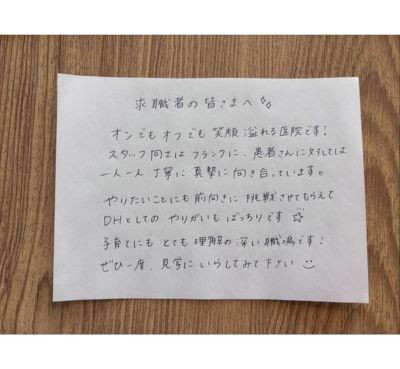 求職者の皆さまへ
オンでもオフでも 笑顔 溢れる医院です！
スタッフ同士は フランクに、患者さんに対しては
一人一人 丁寧に 真摯に向き合っています。
やりたいことにも 前向きに 挑戦させてもらえて
DHとしての やりがいも ばっちりです ☆
子育てにも とても 理解の深い 職場です！
ぜひ一度、見学に いらしてみて下さい ☺